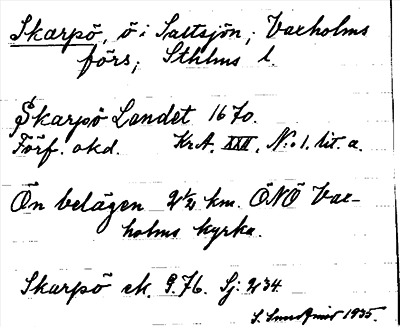 Skarpö, ö i Saltsjön, Vaxholms
förs, Sthlms l.
Skarpö Landet 1670.
Förf. okd. Kr.A. XXII, N:o 1. lit. a.
Ön belägen 2½ km. ÖNÖ Vax-
holms kyrka.
Skarpö ek. 9.76. Sj: 234.
1935.